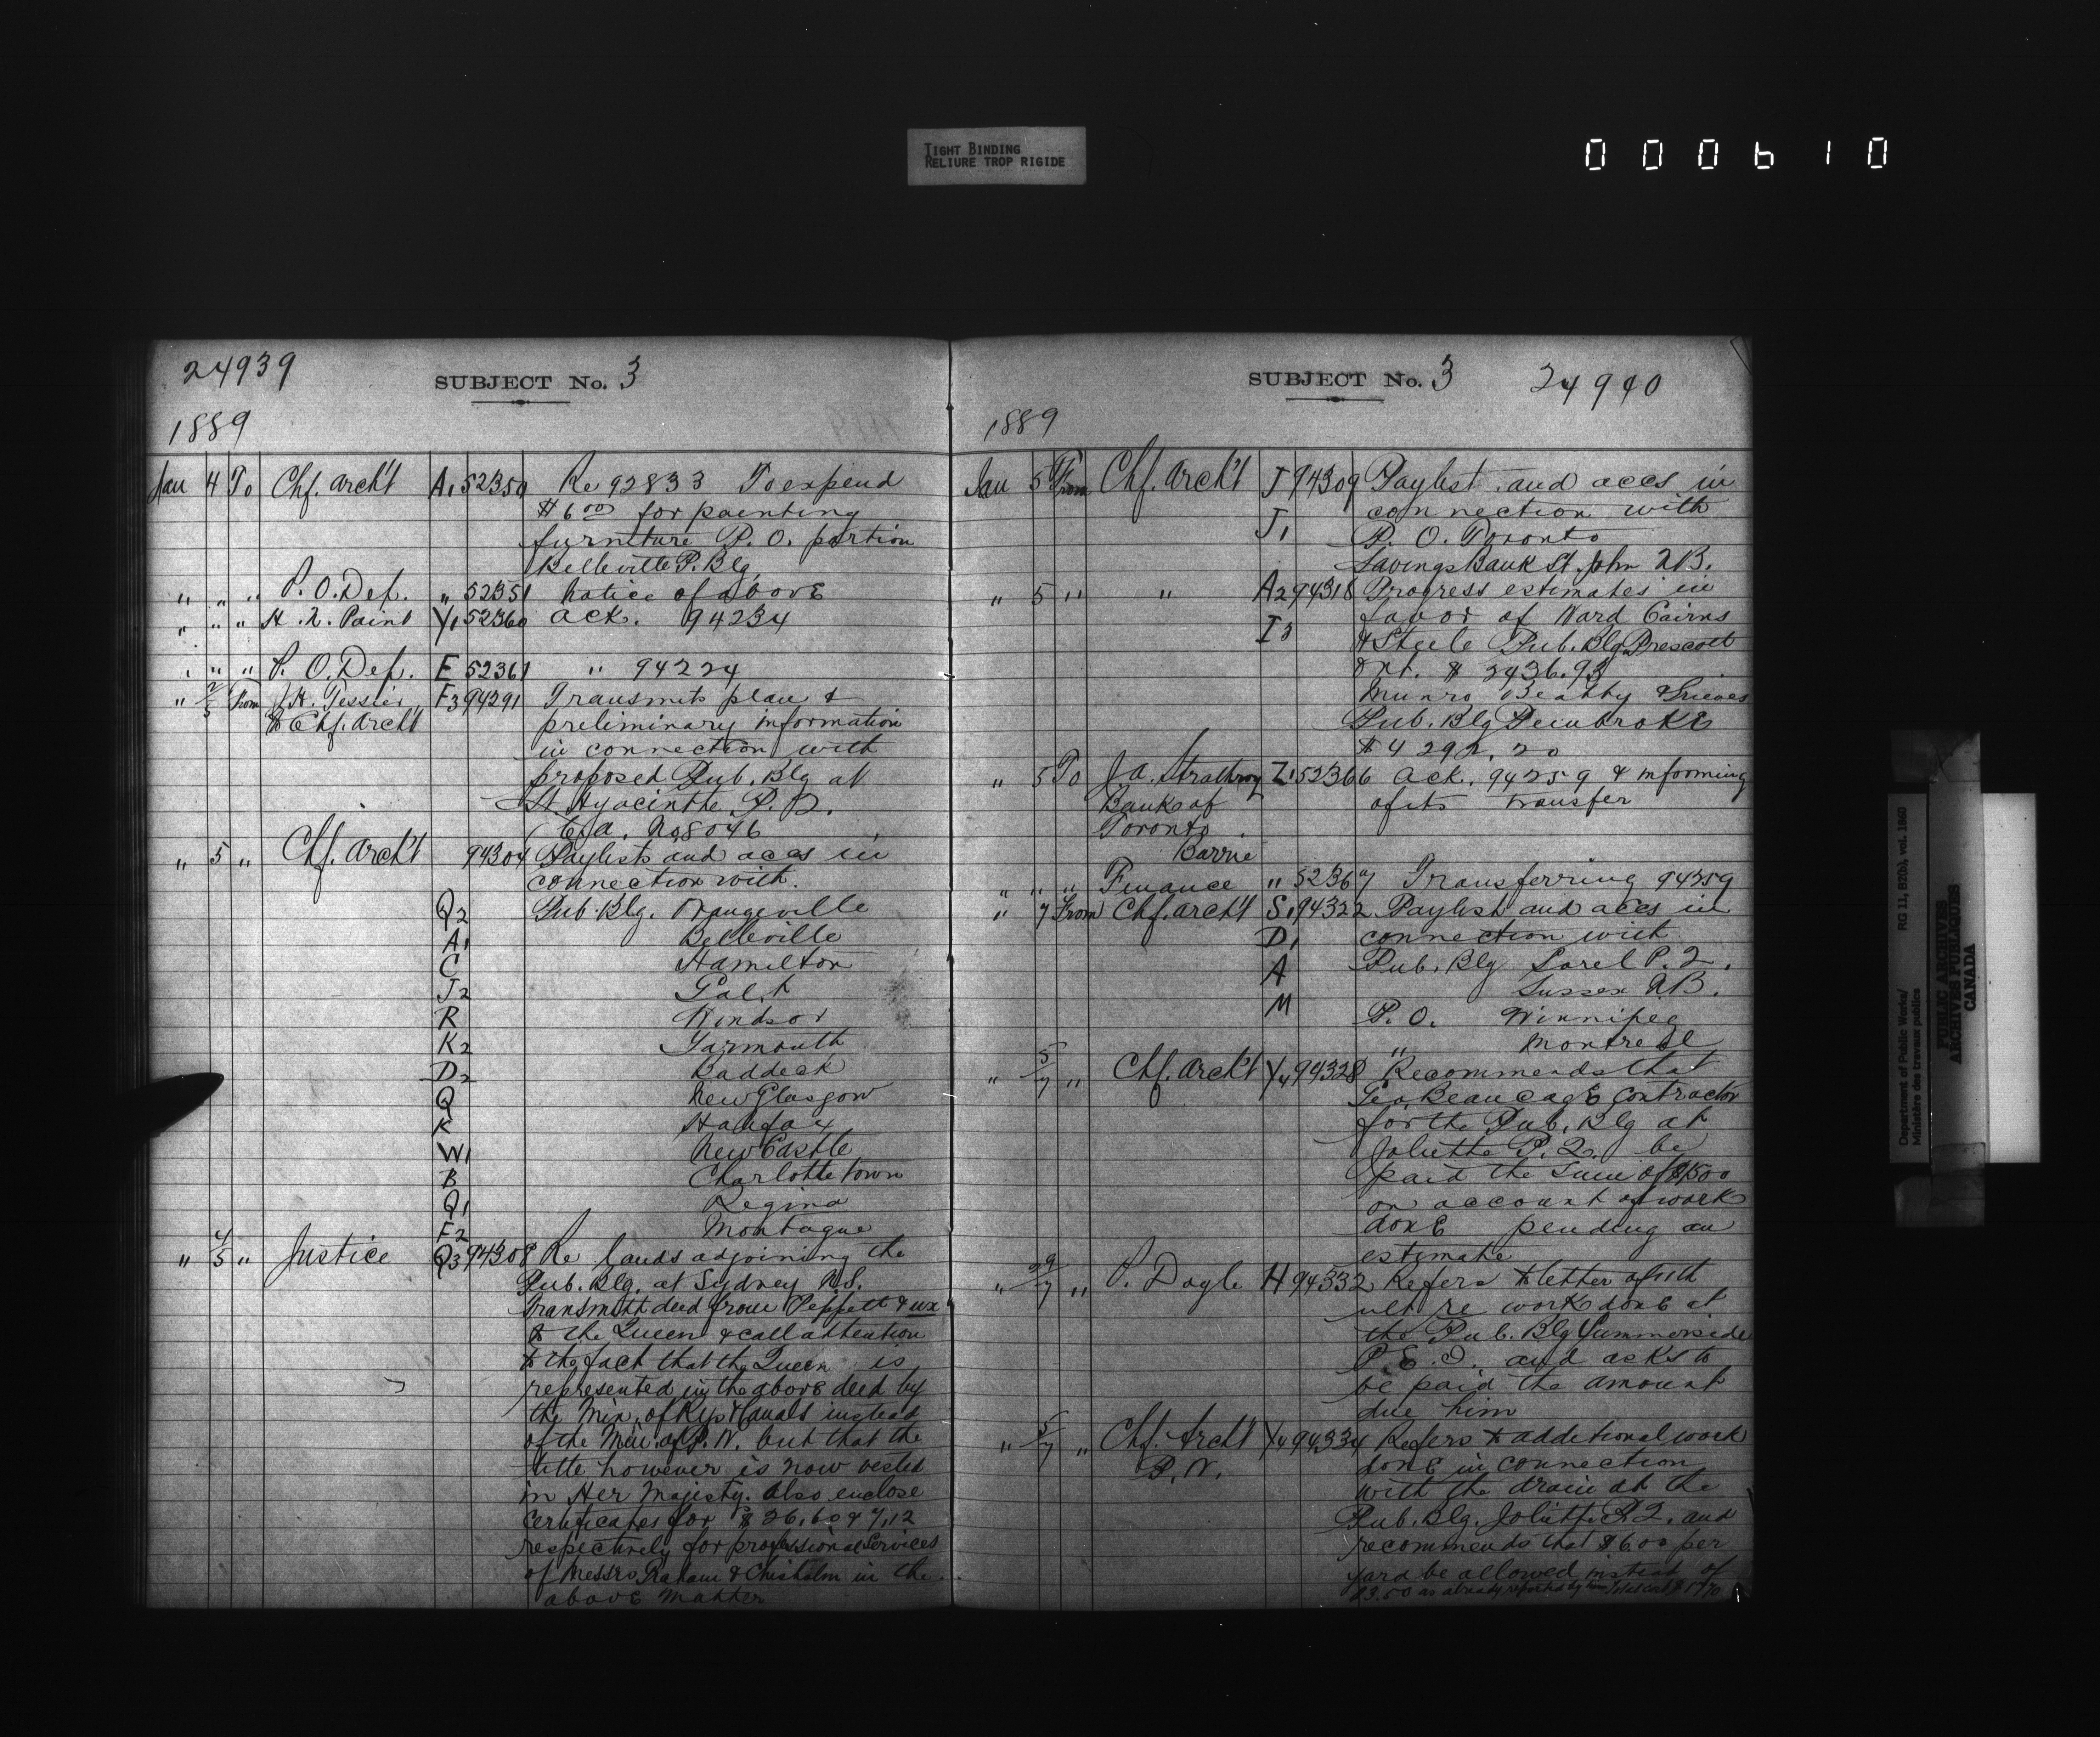 TIGHT BINDING
RELIURE TROP RIGIDE
000610
24939
SUBJECT No. 3
1889
Jan 4 To Chf. Archt A1 52350 Re 92833 To expend
$6 00 for painting
furniture P. O. portion
Belleville P. Blg.
" " " P. O. Def. " 52351 Notice of above
" " " H. N. Paint Y1 52360 Ack. 94234
" " " P. O. Def. E 52361 " 94224
" 2/5 From J. H. Tessier F3 94291 Transmits plan &
to Chf. Archt preliminary information
in connection with
proposed Pub. Blg at
St. Hyacinthe P. Q.
C. A. No 8046
" 5 " Chf. Archt 94304 Paylists and accs in
connection with
Q2 Pub. Blg. Orangeville
A1 Belleville
C Hamilton
J2 Galt
R Windsor
K2 Yarmouth
D2 Baddeck
Q New Glasgow
K Halifax
W1 New Castle
B Charlottetown
Q1 Regina
F2 Montague
" 4/5 " Justice Q3 94308 Re lands adjoining the
Pub. Blg. at Sydney N.S.
Transmitt deed from Peppett & ux
to the Queen & call attention
to the fact that the Queen is
represented in the above deed by
the Min. of Rys & Canals instead
of the Min. of P. W. but that the
title however is now vested
in Her Majesty. Also enclose
Certificates for $26.60 & 7.12
respectively for professional services
of Messrs & Chisholm in the
above matter
SUBJECT No. 3
24940
1889
Jan 5 From Chf. Archt J 94309 Paylist and accs in
connection with
J1 P. O. Toronto
Savings Bank St. John N B.
" 5 " " A2 94318 Progress estimates in
favor of Ward Cairns
I3 & Steele Pub. Blg Prescott
Ont. $ 2436.93
Munro Beatty & Grieves
Pub. Blg Pembroke
$ 4 292. 20
" 5 To J. A. Strathroy Z1 52366 Ack. 94259 & informing
Bank of of its transfer
Toronto
Barrie
" " " Finance " 52367 Transferring 94259
" 7 From Chf. Archt S1 94322 Paylist and accs in
D1 connection with
A Pub. Blg Sorel P. Q.
Sussex N B.
M P. O. Winnipeg
" Montreal
" 5/7 " Chf. Archt Y4 94328 Recommends that
Geo. Beaucage Contractor
for the Pub. Blg at
Joliette P. Q. be
paid the sum of $1500
on account of work
done pending an
estimate
" 29/7 " P. Doyle H 94332 Refers to letter of
ult re work done at
the Pub. Blg Summerside
P. E. I. and asks to
be paid the amount
due him
" 5/7 " Chf. Archt Y4 94334 Refers to additional work
P. W. done in connection
with the drain at the
Pub. Blg. Joliette P. Q. and
recommends that $6.00 per
yard be allowed instead of
$3.50 as already reported by him
Department of Public Works/ RG 11, B2(b), vol. 1860
Ministère des travaux publics
PUBLIC ARCHIVES
ARCHIVES PUBLIQUES
CANADA